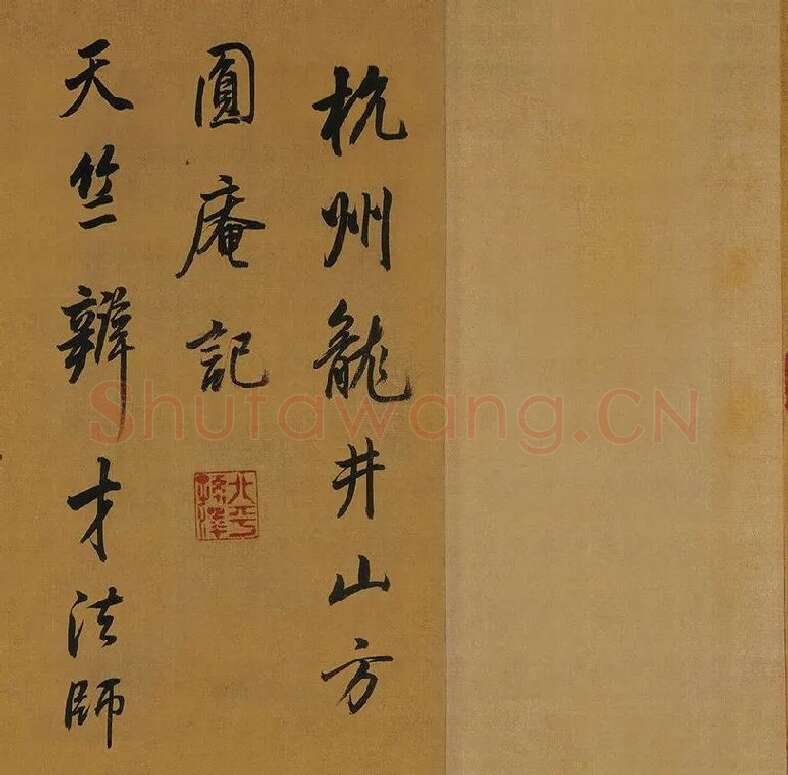 杭州龍井山方
圓庵記
天竺辯才法師
北平孫澤
Shufawang.CN